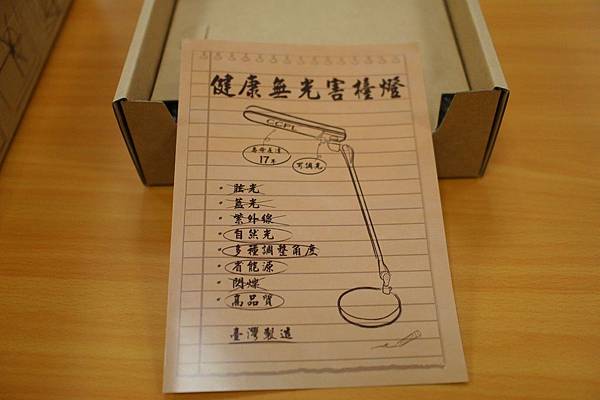 健康無光害檯燈
CCFL
壽命長達
17年
可調光
・眩光
・藍光
・紫外線
・自然光
・多種調整角度
・省能源
・閃爍
・高品質
臺灣製造